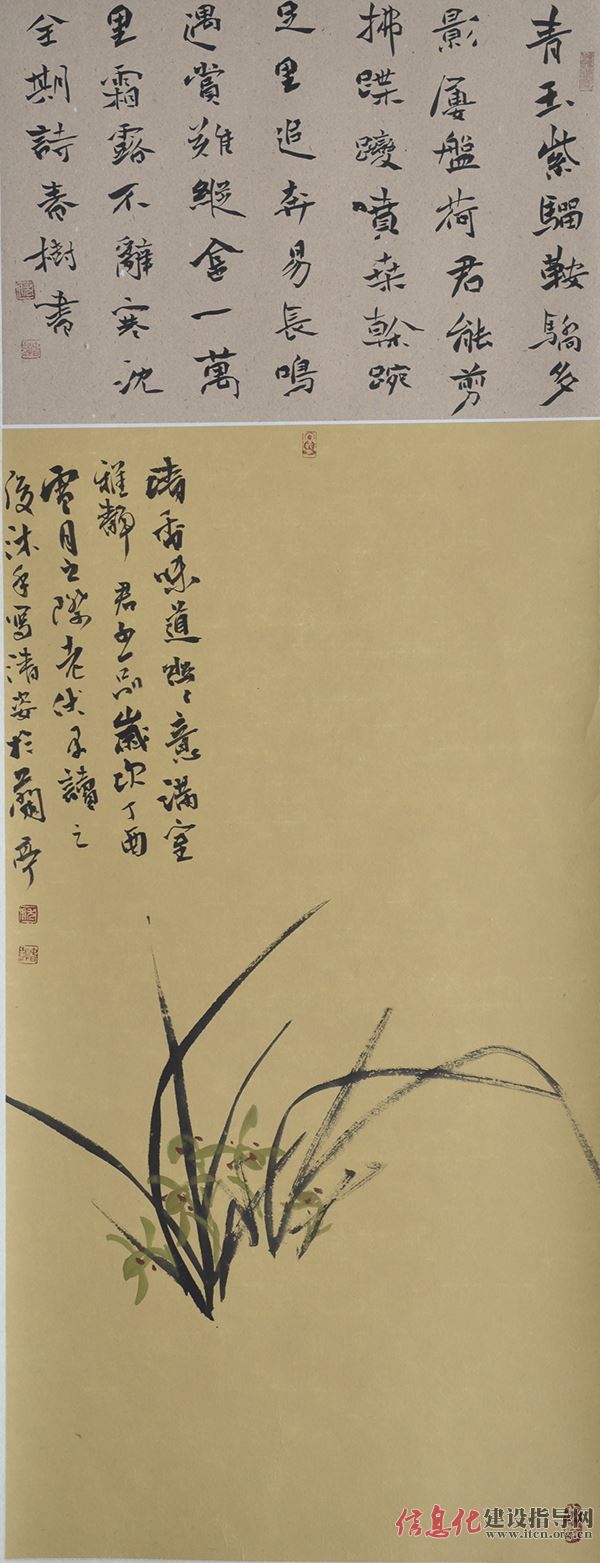 青玉紫騮鞍驕多
影屢盤荷君能剪
拂蹀躞噴桑乾踠
足里追奔易長鳴
遇賞難縱金一萬
里霜露不辭寒沈
全期詩春樹書
清香味道 意滿室
雅靜 君子品歲次丁酉
雪月之際老伏 讀之
後沐手寫清姿於蘭亭
信息化建设指导网
www.itcn.org.cn